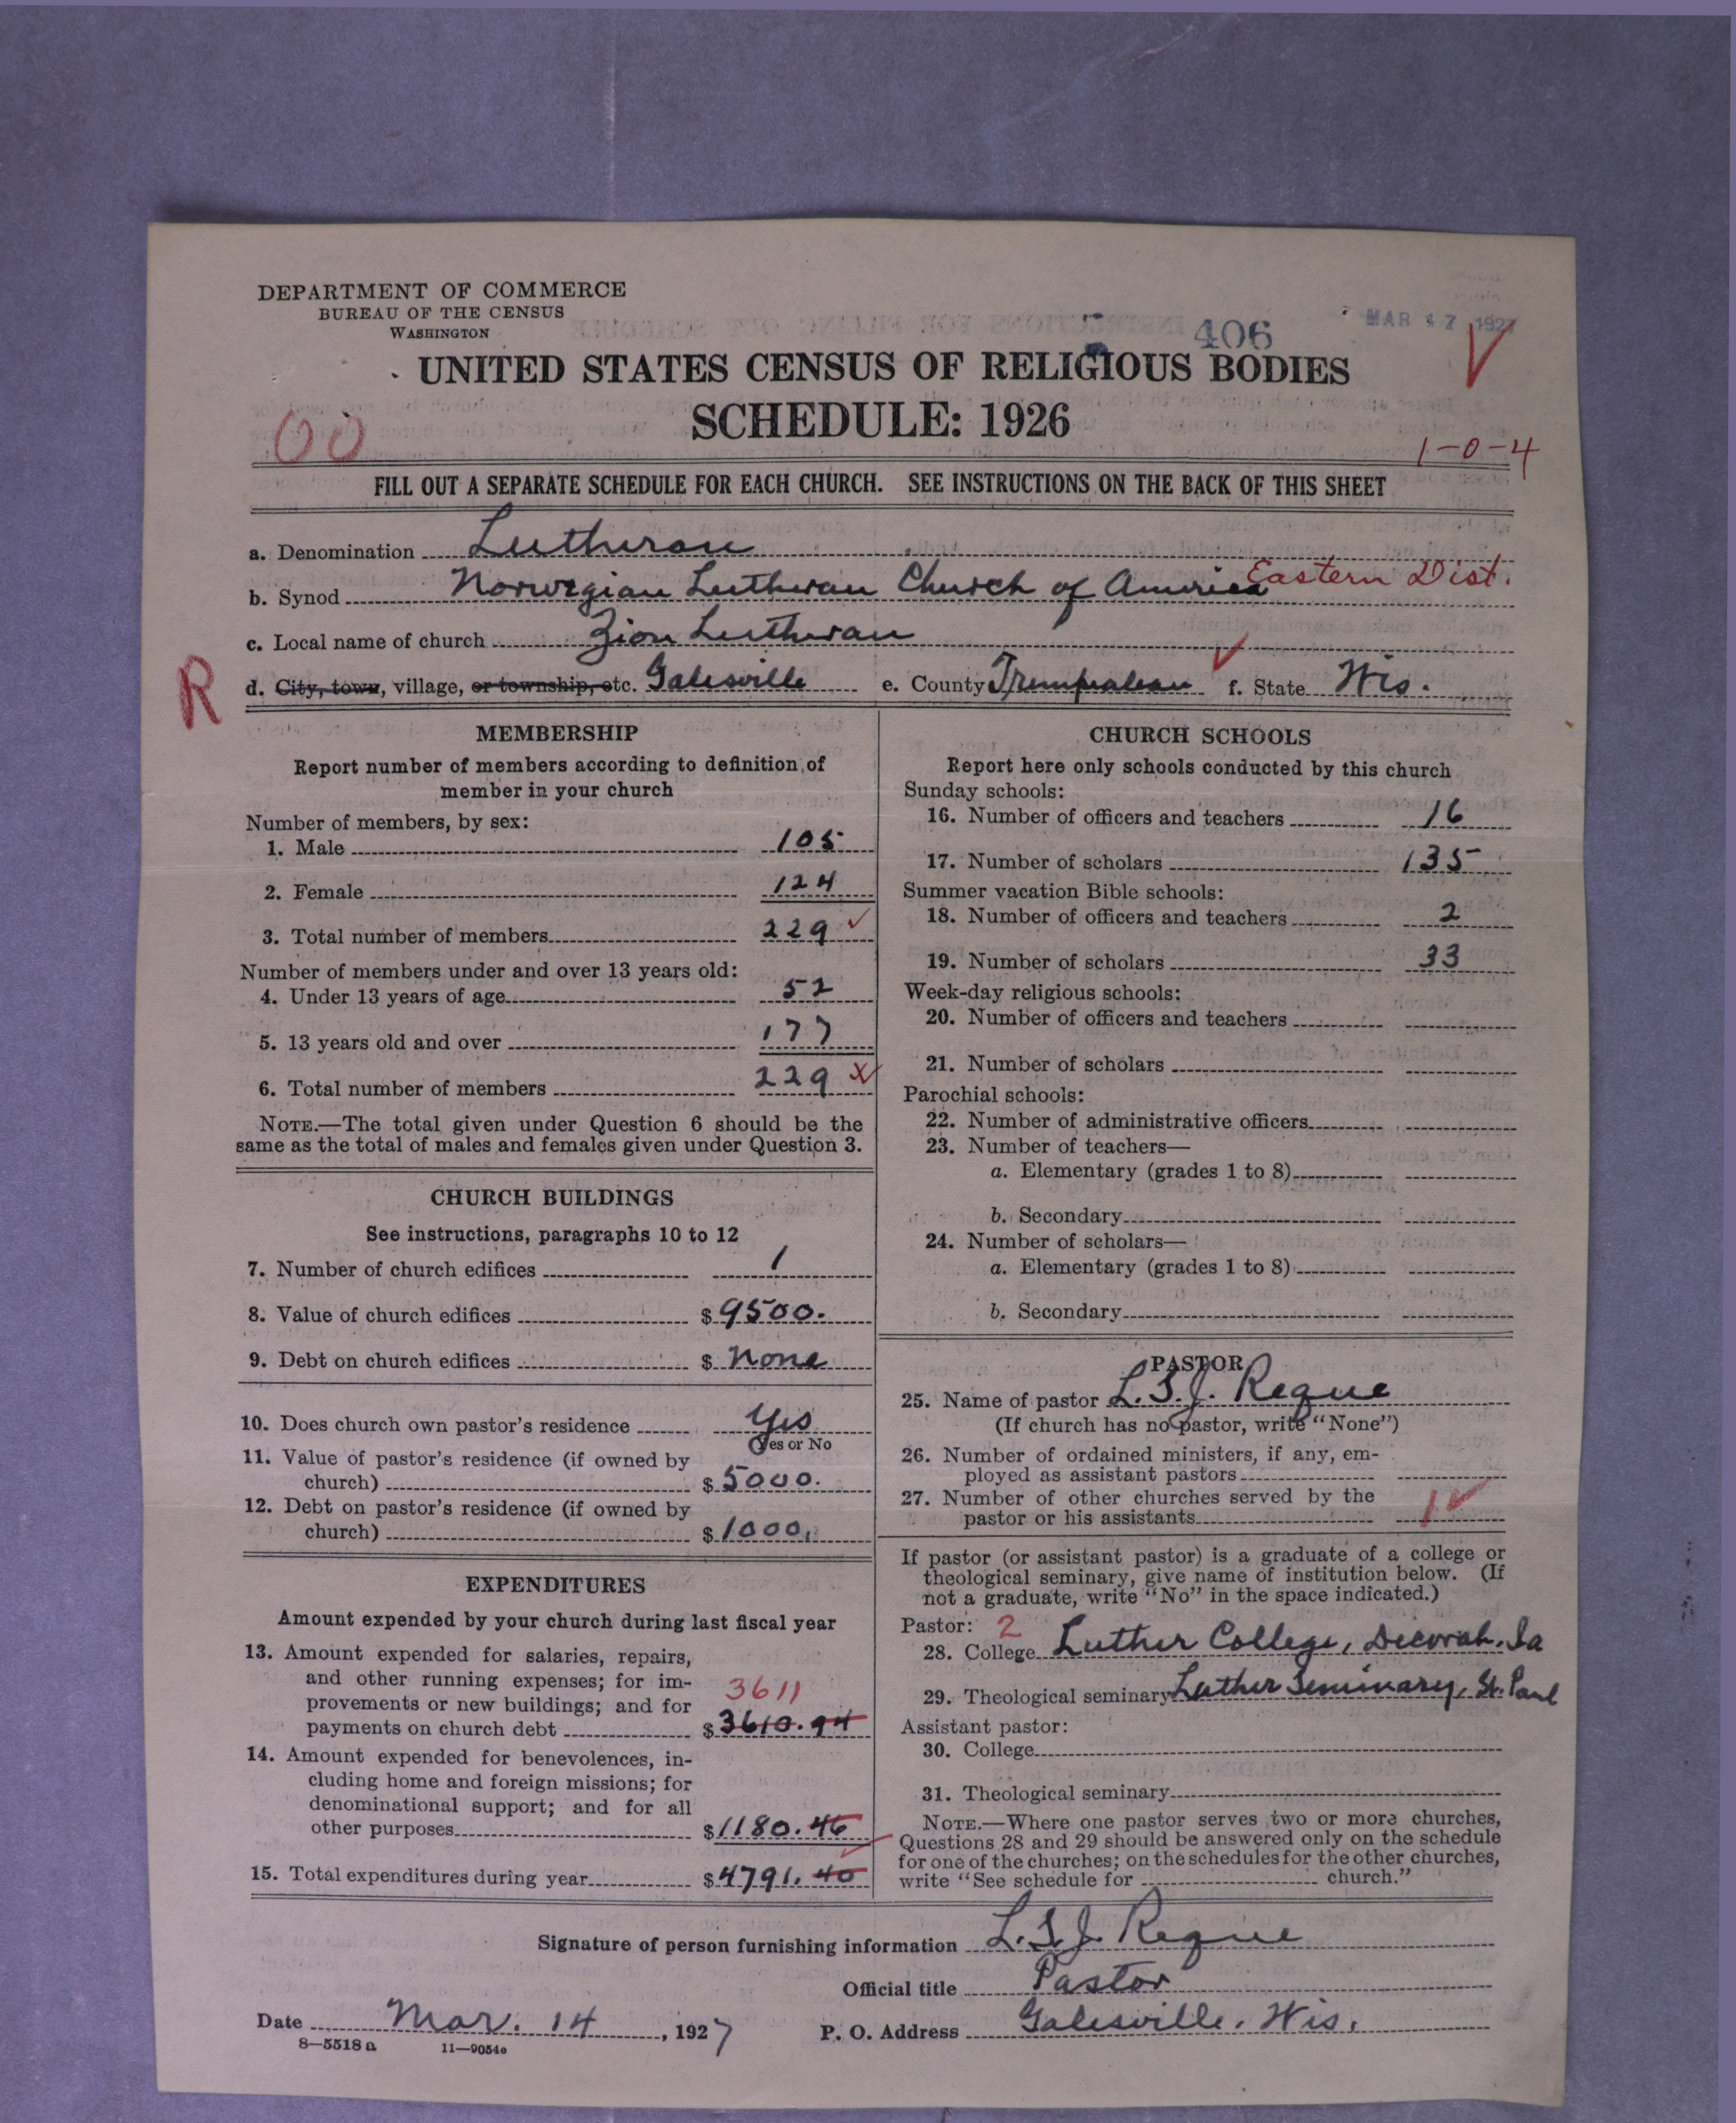 DEPARTMENT OF COMMERCE
BUREAU OF THE CENSUS
WASHINGTON
406
MAR 17 1927
UNITED STATES CENSUS OF RELIGIOUS BODIES
SCHEDULE: 1926
00
1-0-4
FILL OUT A SEPARATE SCHEDULE FOR EACH CHURCH. SEE INSTRUCTIONS ON THE BACK OF THIS SHEET
a. Denomination Lutheran
b. Synod Norwegian Lutheran Church of America Eastern Dist.
c. Local name of church Zion Lutheran
R
d. City, town, village, or township, etc. Galesville e. County Trempealeau f. State Wis.
MEMBERSHIP
Report number of members according to definition of
member in your church
Number of members, by sex:
1. Male 105
2. Female 124
3. Total number of members 229
Number of members under and over 13 years old:
4. Under 13 years of age 52
5. 13 years old and over 177
6. Total number of members 229
NOTE.—The total given under Question 6 should be the
same as the total of males and females given under Question 3.
CHURCH BUILDINGS
See instructions, paragraphs 10 to 12
7. Number of church edifices 1
8. Value of church edifices $ 9500.
9. Debt on church edifices $ none
10. Does church own pastor's residence Yes
Yes or No
11. Value of pastor's residence (if owned by
church) $ 5000.
12. Debt on pastor's residence (if owned by
church) $ 1000.
EXPENDITURES
Amount expended by your church during last fiscal year
13. Amount expended for salaries, repairs,
and other running expenses; for im-
provements or new buildings; and for 3611
payments on church debt $ 3610.94
14. Amount expended for benevolences, in-
cluding home and foreign missions; for
denominational support; and for all
other purposes $ 1180.46
15. Total expenditures during year $ 4791.40
CHURCH SCHOOLS
Report here only schools conducted by this church
Sunday schools:
16. Number of officers and teachers 16
17. Number of scholars 135
Summer vacation Bible schools:
18. Number of officers and teachers 2
19. Number of scholars 33
Week-day religious schools:
20. Number of officers and teachers
21. Number of scholars
Parochial schools:
22. Number of administrative officers
23. Number of teachers—
a. Elementary (grades 1 to 8)
b. Secondary
24. Number of scholars—
a. Elementary (grades 1 to 8)
b. Secondary
PASTOR
25. Name of pastor L.S.J. Reque
(If church has no pastor, write "None")
26. Number of ordained ministers, if any, em-
ployed as assistant pastors
27. Number of other churches served by the
pastor or his assistants 1
If pastor (or assistant pastor) is a graduate of a college or
theological seminary, give name of institution below. (If
not a graduate, write "No" in the space indicated.)
Pastor: 2
28. College Luther College, Decorah, Ia
29. Theological seminary Luther Seminary, St. Paul
Assistant pastor:
30. College
31. Theological seminary
NOTE.—Where one pastor serves two or more churches,
Questions 28 and 29 should be answered only on the schedule
for one of the churches; on the schedules for the other churches,
write "See schedule for church."
Signature of person furnishing information L.S.J. Reque
Official title Pastor
Date Mar. 14, 1927 P. O. Address Galesville, Wis.
8—5518 a 11—9054e